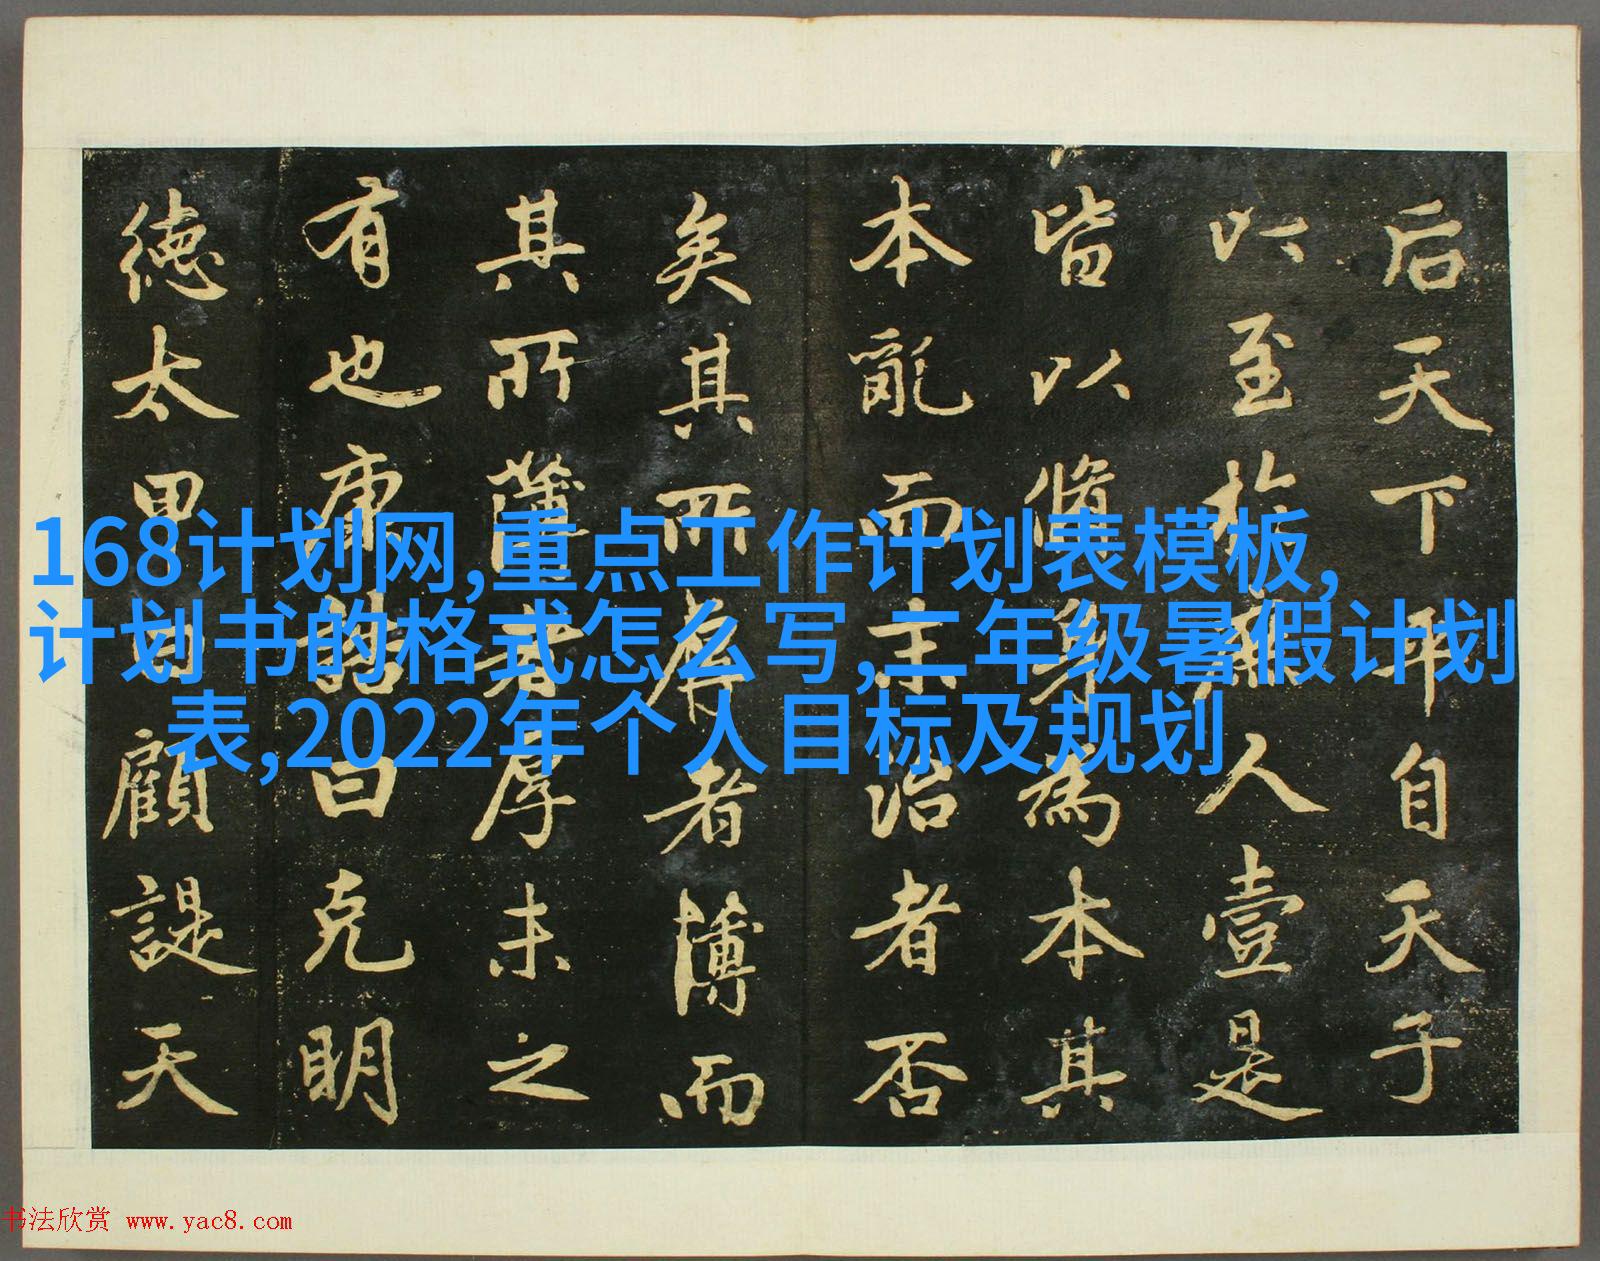 后天下平自天子
以至於庶人壹是
皆以脩身為本其
本亂而末治者否
矣其所厚者薄而
其所薄者厚未之
有也康誥曰克明
德太甲曰顧諟天
168计划网,重点工作计划表模板,
计划书的格式怎么写,二年级暑假计划
表,2022年个人目标及规划
书法欣赏 www.yac8.com